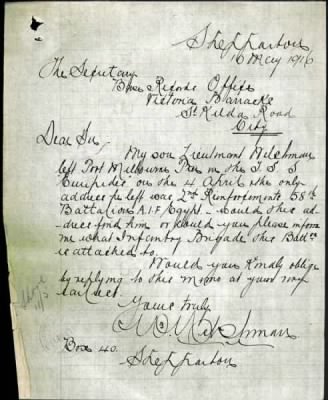 Shepparton
16 May 1916
The Secretary
Base Records Office
Victoria Barracks
St Kilda Road
City
Dear Sir,
My son Lieutenant
left Port Melbourne on the
Euripides on the 4 April the only
address he left was 2nd Reinforcements 58th
Battalion A.I.F. Egypt - would this ad-
dress find him or would you please inform
me what Infantry Brigade this Battn
is attached to.
Would you kindly oblige
by replying to this memo at your very
earliest.
Yours truly
Box 40.
Shepparton